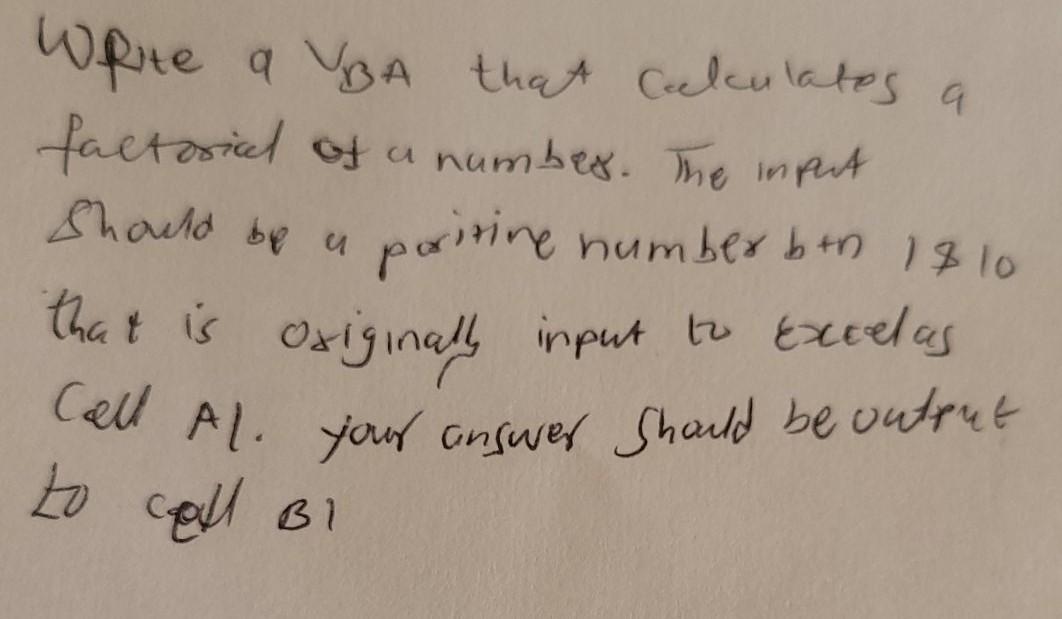 Write a VBA that calculates a
factorial of a number. The input
should be a positive number btn 1 & 10
that is originally input to Excel as
Cell A1. your answer should be output
to cell B1